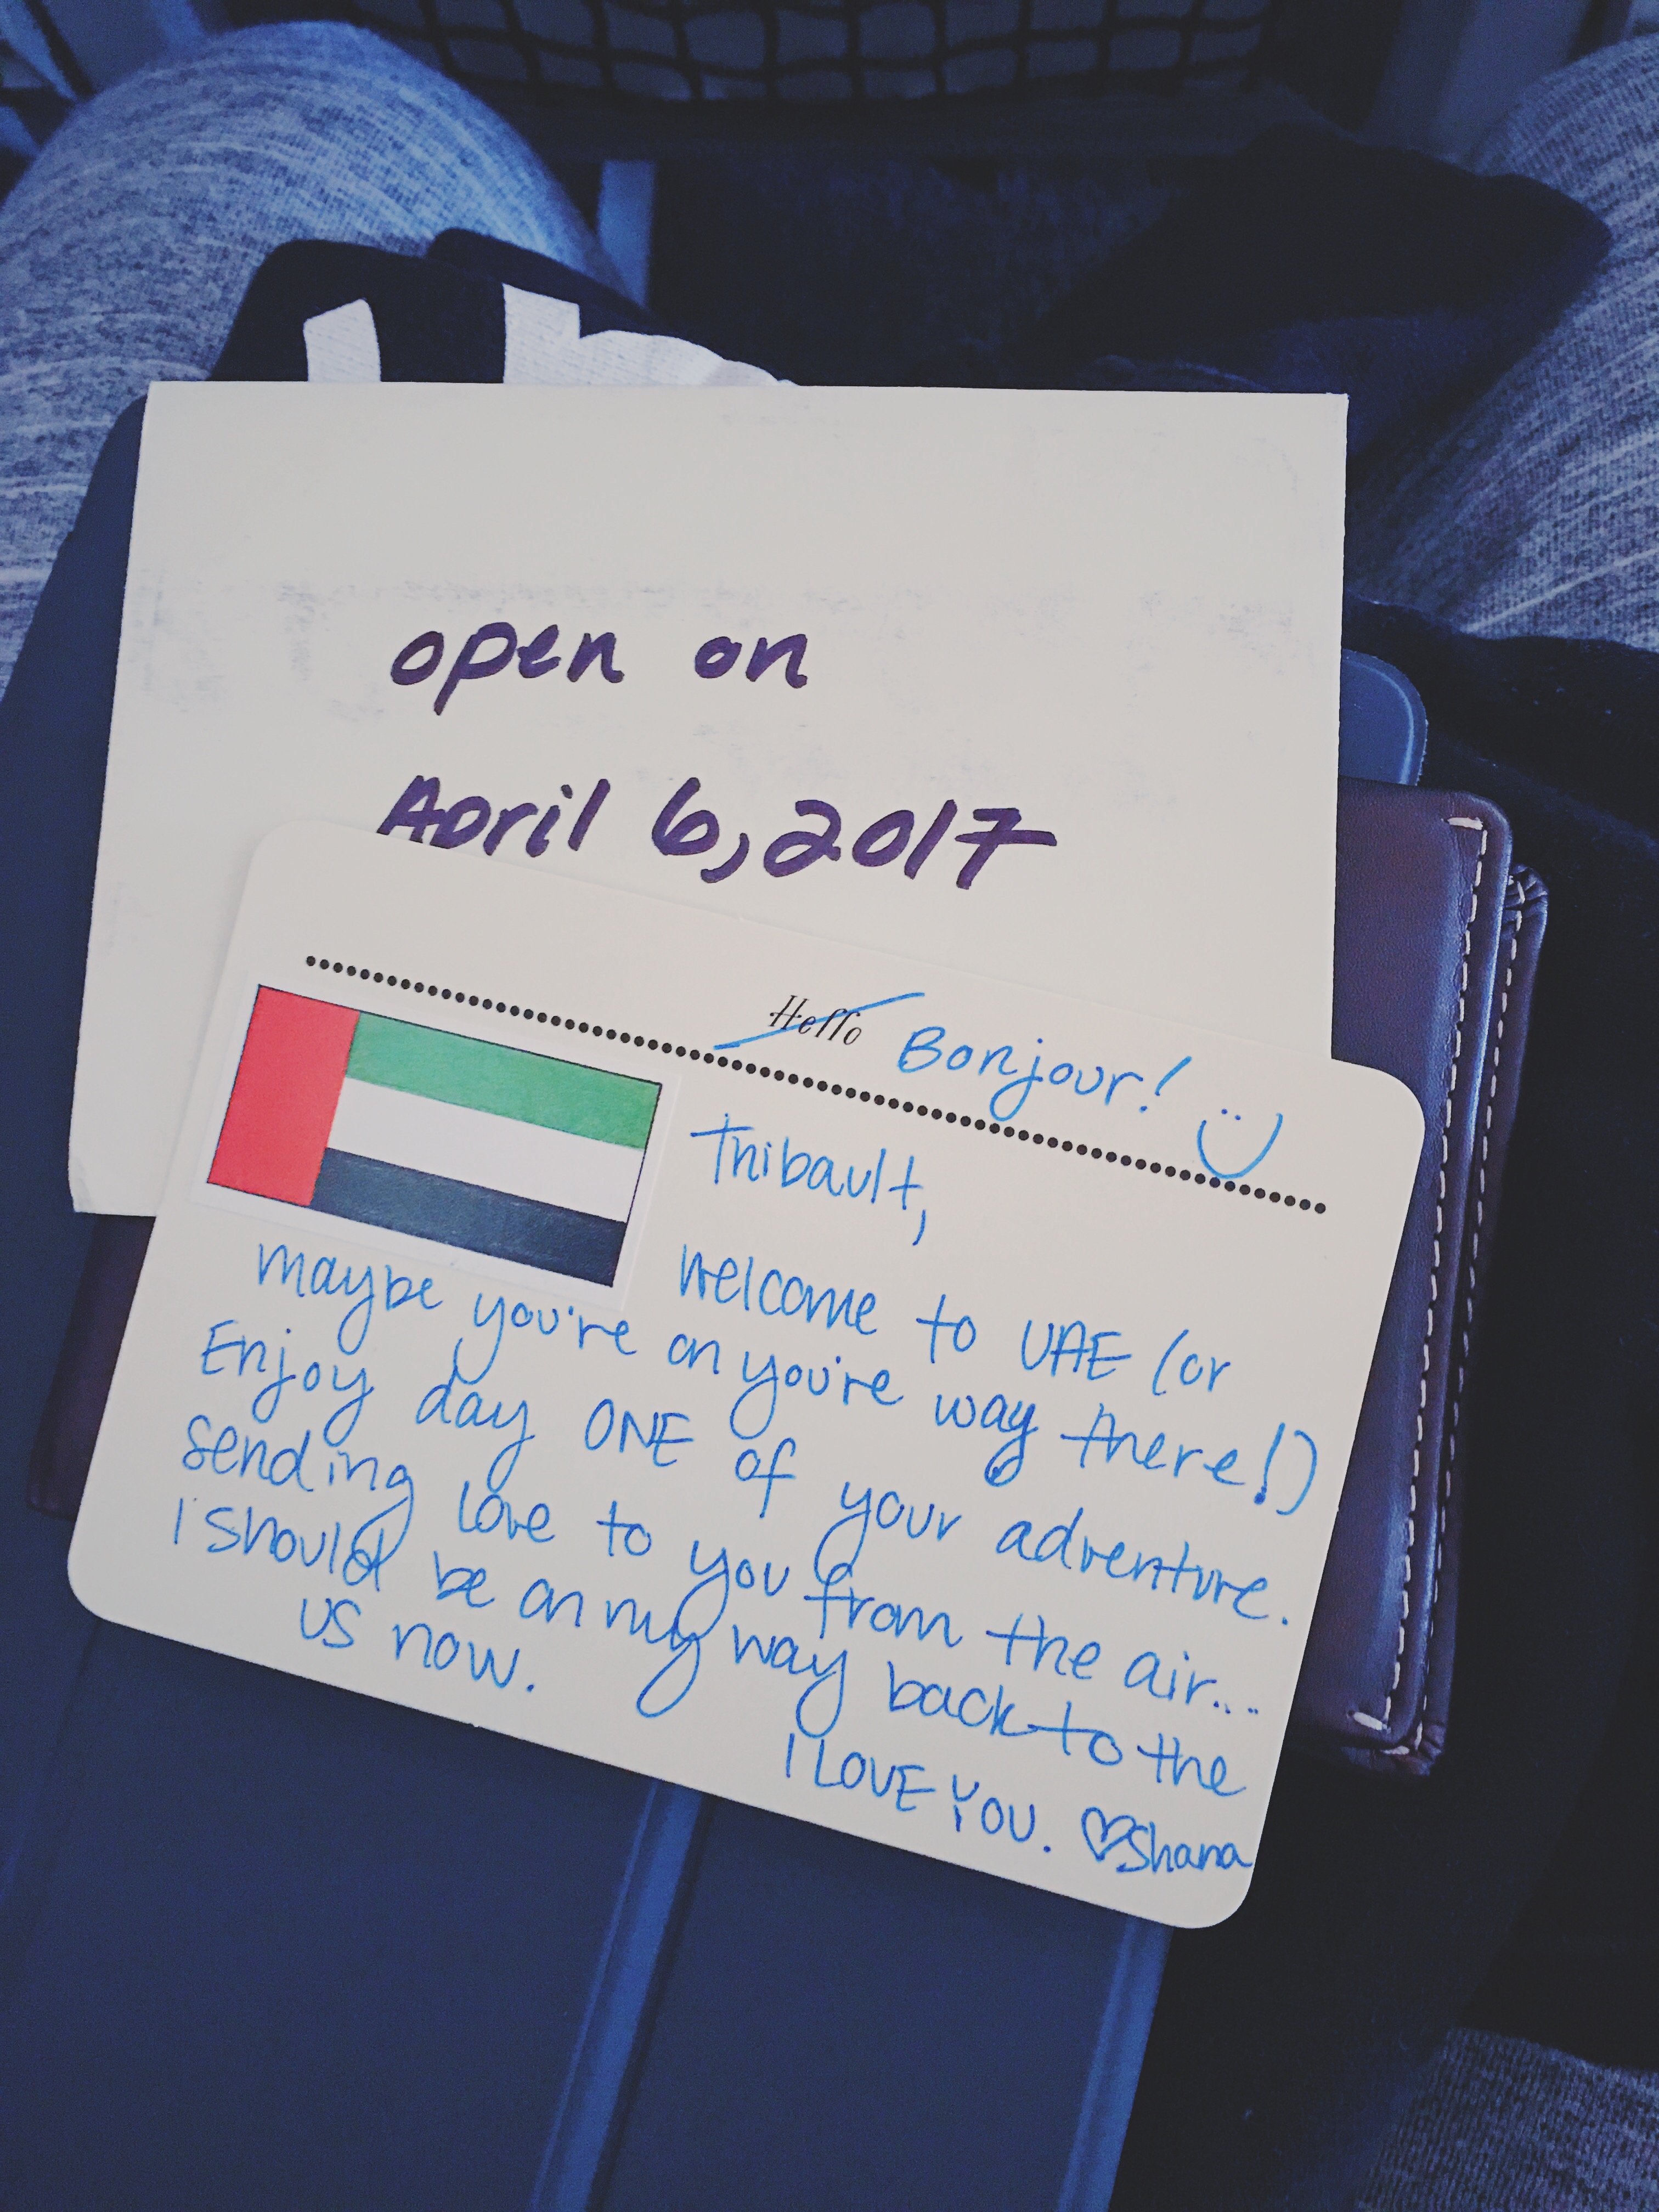 open on
April 6, 2017
Hello Bonjour!
Thibault,
Welcome to UAE (or
maybe you're on you're way there!)
Enjoy day ONE of your adventure.
Sending love to you from the air...
I should be on my way back to the
US now.
I LOVE YOU. ♡Shana